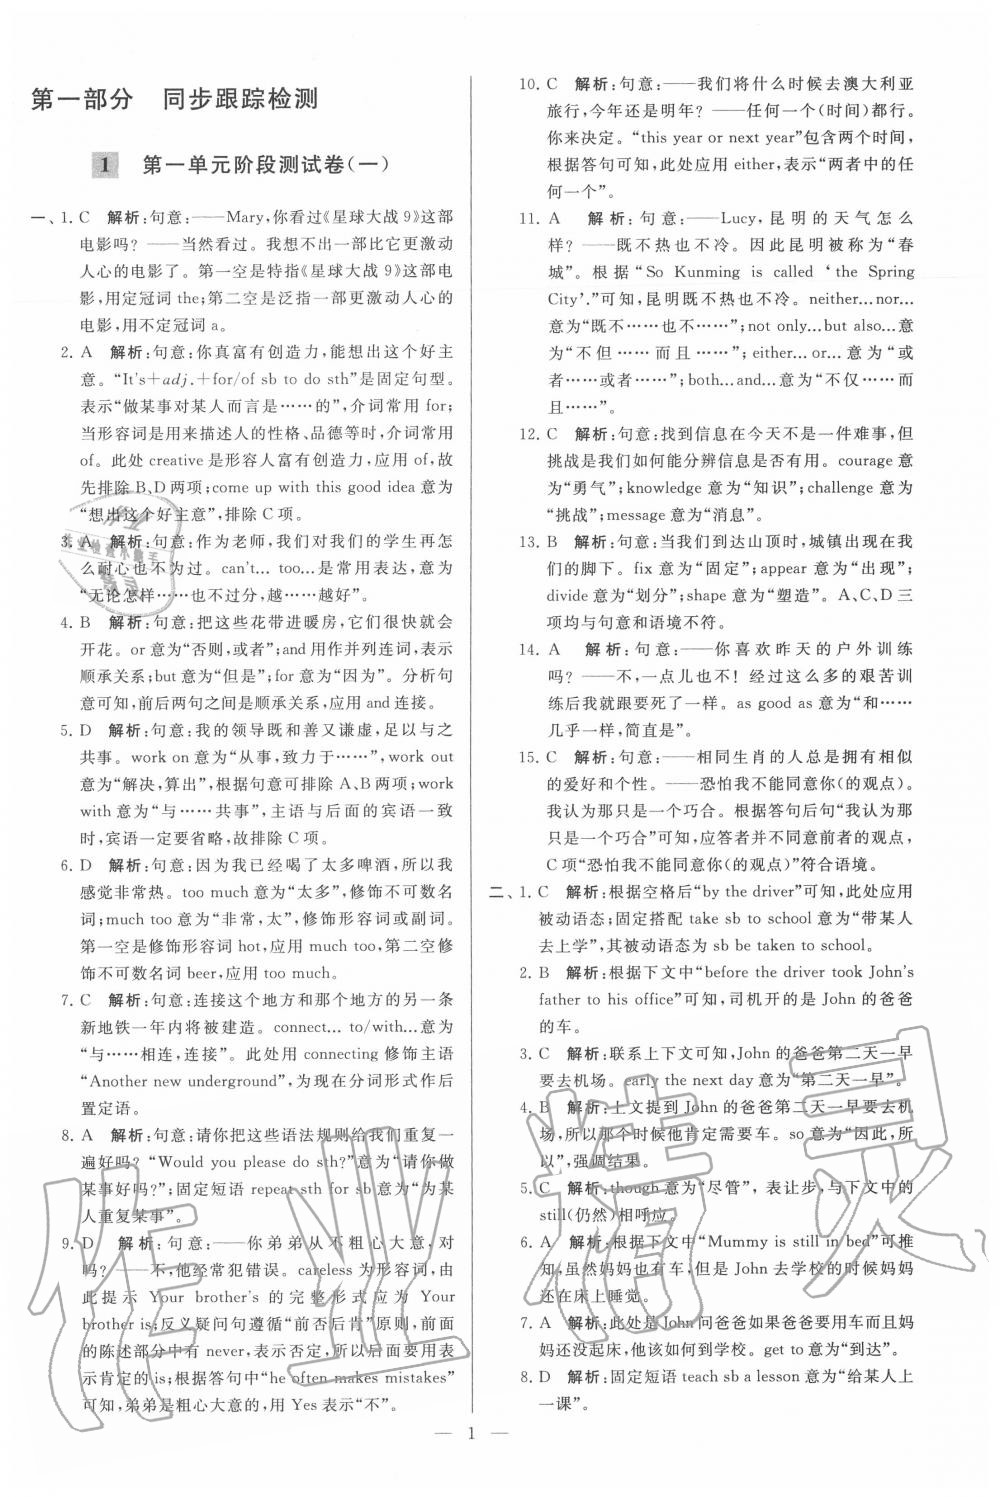 第一部分 同步跟踪检测
1 第一单元阶段测试卷(一)
一、1. C 解析:句意:——Mary,你看过《星球大战9》这部
电影吗?——当然看过。我想不出一部比它更激动
人心的电影了。第一空是特指《星球大战9》这部电
影,用定冠词 the;第二空是泛指一部更激动人心的
电影,用不定冠词 a。
2. A 解析:句意:你真富有创造力,能想出这个好主
意。“It's+adj.+for/of sb to do sth”是固定句型。
表示“做某事对某人而言是……的”,介词常用 for;
当形容词是用来描述人的性格、品德等时,介词常用
of。此处 creative 是形容人富有创造力,应用 of,故
先排除 B、D 两项;come up with this good idea 意为
“想出这个好主意”,排除 C 项。
3. A 解析:句意:作为老师,我们对我们的学生再怎
么耐心也不为过。can't... too...是常用表达,意为
“无论怎样……也不过分,越……越好”。
4. B 解析:句意:把这些花带进暖房,它们很快就会
开花。or 意为“否则,或者”;and 用作并列连词,表示
顺承关系;but 意为“但是”;for 意为“因为”。分析句
意可知,前后两句之间是顺承关系,应用 and 连接。
5. D 解析:句意:我的领导既和善又谦虚,足以与之
共事。work on 意为“从事,致力于……”,work out
意为“解决,算出”,根据句意可排除 A、B 两项;work
with 意为“与……共事”,主语与后面的宾语一致
时,宾语一定要省略,故排除 C 项。
6. D 解析:句意:因为我已经喝了太多啤酒,所以我
感觉非常热。too much 意为“太多”,修饰不可数名
词;much too 意为“非常,太”,修饰形容词或副词。
第一空是修饰形容词 hot,应用 much too,第二空修
饰不可数名词 beer,应用 too much。
7. C 解析:句意:连接这个地方和那个地方的另一条
新地铁一年内将被建造。connect... to/with...意为
“与……相连,连接”。此处用 connecting 修饰主语
“Another new underground”,为现在分词形式作后
置定语。
8. A 解析:句意:请你把这些语法规则给我们重复一
遍好吗?“Would you please do sth?”意为“请你做
某事好吗?”;固定短语 repeat sth for sb 意为“为某
人重复某事”。
9. D 解析:句意:——你弟弟从不粗心大意,对
吗?——不;他经常犯错误。careless 为形容词,由
此提示 Your brother's 的完整形式应为 Your
brother is;反义疑问句遵循“前否后肯”原则,前面
的陈述部分中有 never,表示否定,所以后面用表
示肯定的 is;根据答句中“he often makes mistakes”
可知,弟弟是粗心大意的,用 Yes 表示“不”。
10. C 解析:句意:——我们将什么时候去澳大利亚
旅行,今年还是明年?——任何一个(时间)都可以。
你来决定。“this year or next year”包含两个时间,
根据答句可知,此处应用 either,表示“两者中的任
何一个”。
11. A 解析:句意:——Lucy,昆明的天气怎么
样?——既不热也不冷。因此昆明被称为“春
城”。根据“So Kunming is called ‘the Spring
City’.”可知,昆明既不热也不冷。neither...nor...
意为“既不……也不……”;not only...but also...意
为“不但……而且……”;either...or...意为“或
者……或者……”;both...and...意为“不仅……而
且……”。
12. C 解析:句意:找到信息在今天不是一件难事,但
挑战是我们如何能分辨信息是否有用。courage 意
为“勇气”;knowledge 意为“知识”;challenge 意为
“挑战”;message 意为“消息”。
13. B 解析:句意:当我们到达山顶时,城镇出现在我
们的脚下。fix 意为“固定”;appear 意为“出现”;
divide 意为“划分”;shape 意为“塑造”。A、C、D 三
项均与句意和语境不符。
14. A 解析:句意:——你喜欢昨天的户外训练
吗?——不,一点儿也不!经过这么多的艰苦训
练后我就跟要死了一样。as good as 意为“和……
几乎一样,简直是”。
15. C 解析:句意:——相同生肖的人总是拥有相似
的爱好和个性。——恐怕我不能同意你(的观点)。
我认为那只是一个巧合。根据答句后句“我认为那
只是一个巧合”可知,应答者并不同意前者的观点,
C 项“恐怕我不能同意你(的观点)”符合语境。
二、1. C 解析:根据空格后“by the driver”可知,此处应用
被动语态;固定搭配 take sb to school 意为“带某人
去上学”,其被动语态为 sb be taken to school。
2. B 解析:根据下文中“before the driver took John's
father to his office”可知,司机开的是 John 的爸爸
的车。
3. C 解析:联系上下文可知,John 的爸爸第二天一早
要去机场。early the next day 意为“第二天一早”。
4. B 解析:上文提到 John 的爸爸第二天一早要去机
场,所以那个时候他肯定需要车。so 意为“因此,所
以”,强调结果。
5. C 解析:though 意为“尽管”,表让步,与下文中的
still(仍然)相呼应。
6. A 解析:根据下文中“Mummy is still in bed”可推
知,虽然妈妈也有车,但是 John 去学校的时候妈妈
还在床上睡觉。
7. A 解析:此处是 John 问爸爸如果爸爸要用车而且妈
妈还没起床,他该如何到学校。get to 意为“到达”。
8. D 解析:固定短语 teach sb a lesson 意为“给某人上
一课”。
— 1 —
作业精灵